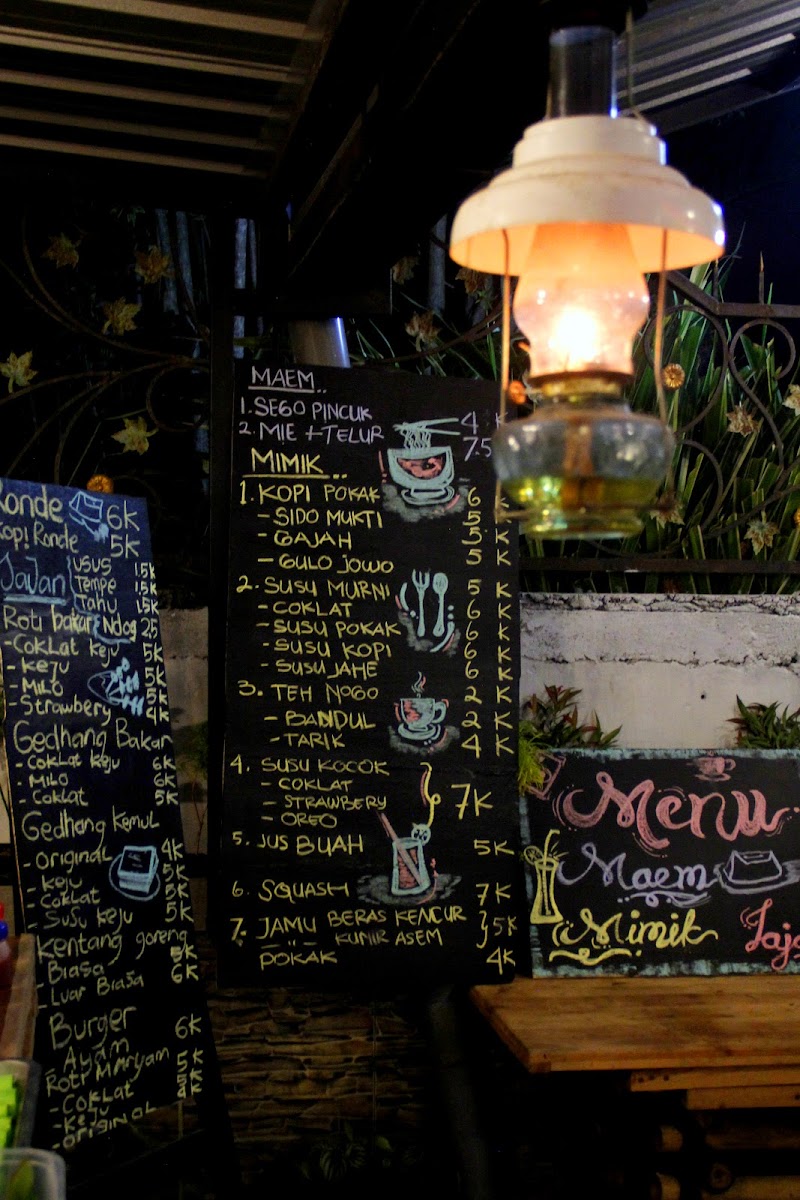 Ronde 6K
Kopi Ronde 5K
JaJan
usus 1.5K
Tempe 1.5K
Tahu 1.5K
Roti bakar Ndog 25
- CokLat keju 5K
- keju 5K
- MiLO 5K
- Strawbery 4K
Gedhang Bakar
- CokLat keju 6K
- MiLO 6K
- CokLat 5K
Gedhang Kemul
- original 4K
- keju 5K
- CokLat 5K
- SuSu keju 5K
kentang goreng
- Biasa 5K
- Luar Biasa 6K
Burger 6K
- Ayam
Roti MAryam
- CokLat
- Keju
- original
MAEM..
1. SEGO PINCUK 4 K
2. MIE + TELUR 7.5
MIMIK..
1. KOPI POKAK 6
- SIDO MUKTI 5
- GAJAH 5 K
- GULO JOWO 5 K
2. SUSU MURNI 5 K
- COKLAT 6 K
- SUSU POKAK 6 K
- SUSU KOPI 6 K
- SUSU JAHE 6 K
3. TEH NOGO 2 K
- BANDUL 2 K
- TARIK 4 K
4. SUSU KOCOK 7K
- COKLAT
- STRAWBERY
- OREO
5. JUS BUAH 5K
6. SQUASH 7K
7. JAMU BERAS KENCUR 5K
KUNIR ASEM
POKAK 4K
Menu
Maem
Mimik
Jaja